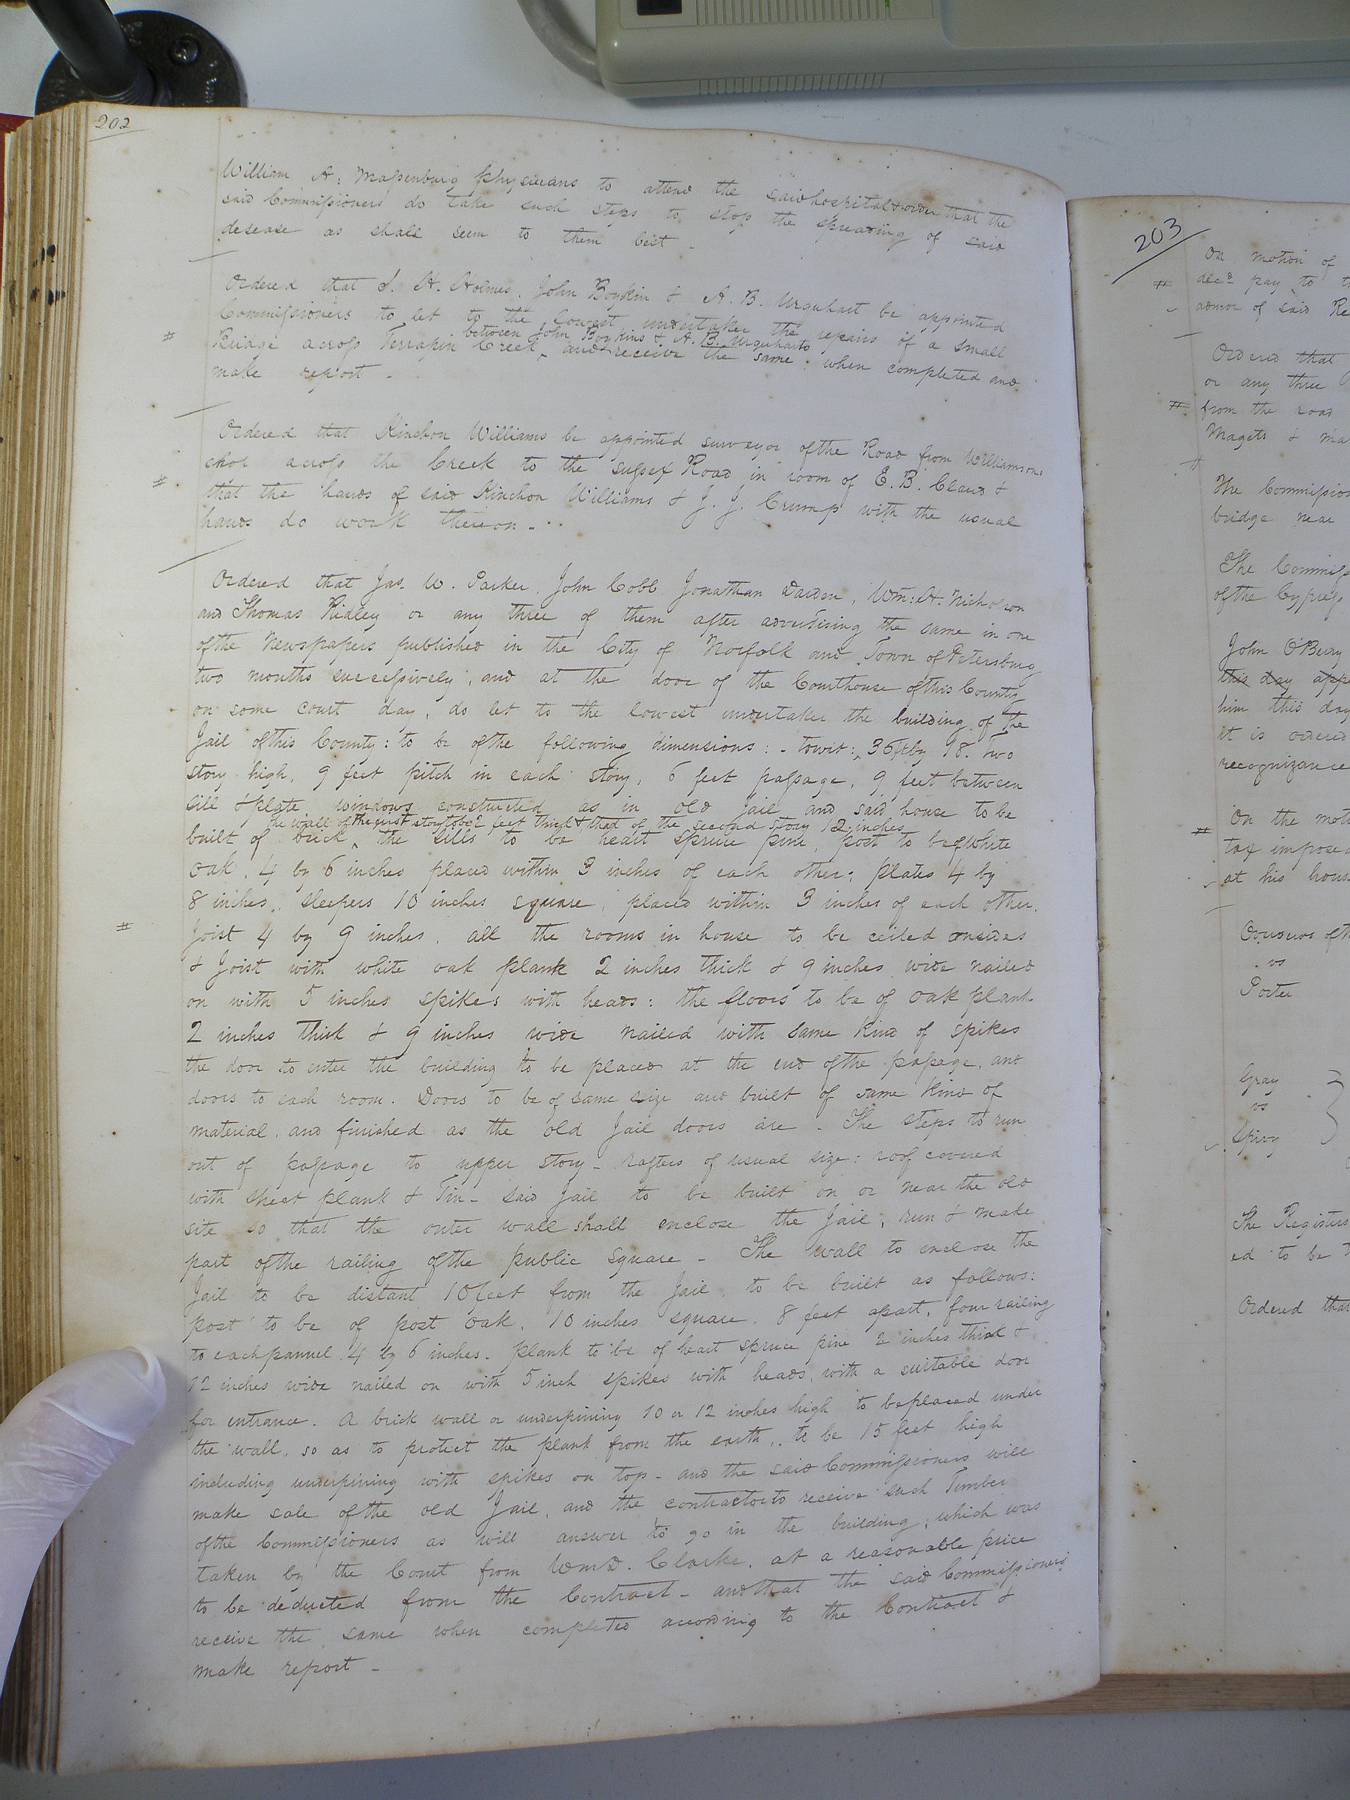 202
William A: Massenburg physicians to attend the said hospital & order that the
said Commissioners do take such steps to stop the spreading of said
desease as shall seem to them best -
Ordered that S. H. Holmes, John Boykin & A. B. Urquhart be appointed
Commissioners to let to the lowest undertaker the repairs of a small
between John Boykins & A. B. Urquharts
# Bridge across Terrapin Creek, and receive the same when completed and
make report -
Ordered that Kinchon Williams be appointed surveyor of the Road from Williamsons
shop across the Creek to the Sussex Road in room of E. B. Claud &
# that the hands of said Kinchon Williams & J. J. Crump with the usual
hands do work thereon -
Ordered that Jas. W. Parker, John Cobb Jonathan Darden, Wm: H. Nicholson
and Thomas Ridley or any three of them after advertising the same in one
of the Newspapers published in the City of Norfolk and Town of Petersburg
two months successively, and at the door of the Courthouse of this County
on some court day, do let to the lowest undertaker the building of the
Jail of this County: to be of the following dimensions: - towit: 36 ft by 18. two
story high, 9 feet pitch in each story, 6 feet passage, 9 feet between
sill & plate, windows constructed as in old jail and said house to be
the wall of the first story to be 2 feet thick & that of the second story 12 inches
built of brick, the sills to be heart spruce pine, post to be of white
oak, 4 by 6 inches placed within 3 inches of each other; plates 4 by
8 inches, sleepers 10 inches square, placed within 3 inches of each other.
# Joist 4 by 9 inches, all the rooms in house to be ceiled onsides
& Joist with white oak plank 2 inches thick & 9 inches wide nailed
on with 5 inches spikes with heads: the floors to be of oak plank
2 inches thick & 9 inches wide nailed with same kind of spikes
the door to enter the building to be placed at the end of the passage, and
doors to each room. Doors to be of same size and built of same kind of
material, and finished as the old Jail doors are - The steps to run
out of passage to upper story - rafters of usual size: roof covered
with sheet plank & Tin - said Jail to be built on or near the old
site so that the outer wall shall enclose the Jail, run & make
part of the railing of the public square - The wall to enclose the
Jail to be distant 10 feet from the Jail to be built as follows:
post to be of post oak, 10 inches square. 8 feet apart, four railing
to each pannel 4 by 6 inches. plank to be of heart spruce pine 2 inches thick &
12 inches wide nailed on with 5 inch spikes with heads, with a suitable door
for entrance. A brick wall or underpining 10 or 12 inches high to be placed under
the wall, so as to protect the plank from the earth, to be 15 feet high
including underpining with spikes on top - and the said Commissioners will
make sale of the old Jail, and the contractor to receive such Timber
of the Commissioners as will answer to go in the building, which was
taken by the Court from Wm D. Clarke, at a reasonable price
to be deducted from the Contract - and that the said Commissioners
receive the same when completed according to the Contract &
make report -
203
On motion of
# decd pay to
admor of said Re
Ordered that
or any three
# from the road
Magets & Ma
The Commission
bridge near
The Commiss
of the Cypress
John O'Berry
this day appe
him this day
it is ordered
recognizance
# On the moti
tax impose
at his hous
of th
vs
Porter
Gray
vs
Spivy
The Registers
ed to be
Ordered that